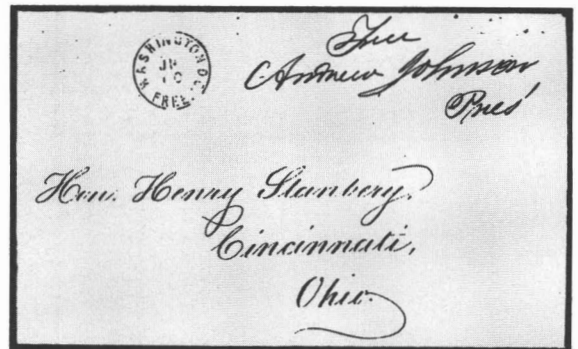 WASHINGTON D.C.
FREE
Free
Andrew Johnson
Pres'
Hon. Henry Stanbery,
Cincinnati,
Ohio.